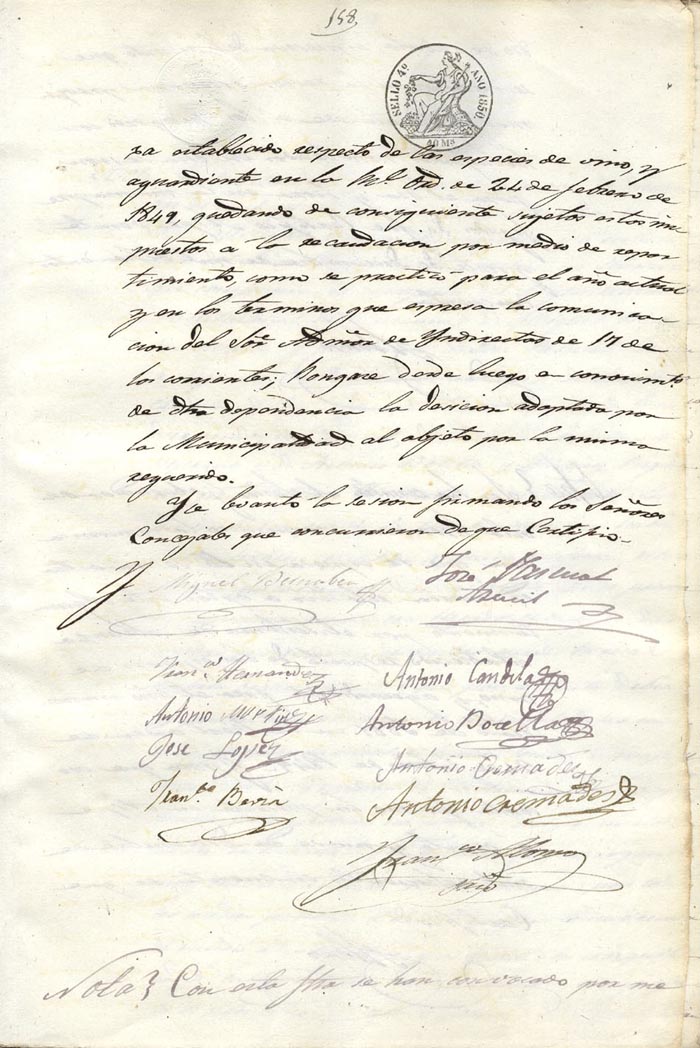 158,
SELLO 4º AÑO 1850
40 Ms
ra establecido respecto de las especies de vino, y
aguardiente en la Rl. Ord. de 24 de febrero de
1849, quedando de consiguiente sujetos estos im
puestos a la recaudacion por medio de repar
timiento, como se practicó para el año actual
y en los terminos que espresa la comunica-
cion del Sor. Admor de Yndirectas de 17 de
los corrientes; Pongase desde luego en conocimto.
de dha dependencia la desicion adoptada por
la Municipalidad al objeto por la misma
requerido.
Y se levantó la sesion firmando los Señores
Concejales que concurrieron de que Certifico.
Miguel Bernabeu
José Pascual
Franco. Hernandez
Antonio Candela
Antonio Martinez
Antonio Botella
Jose Lopez
Antonio Cremades
Franco. Devia
Antonio Cremades
Franco. Alonso
srio
Nota Con esta fha se han convocado por me